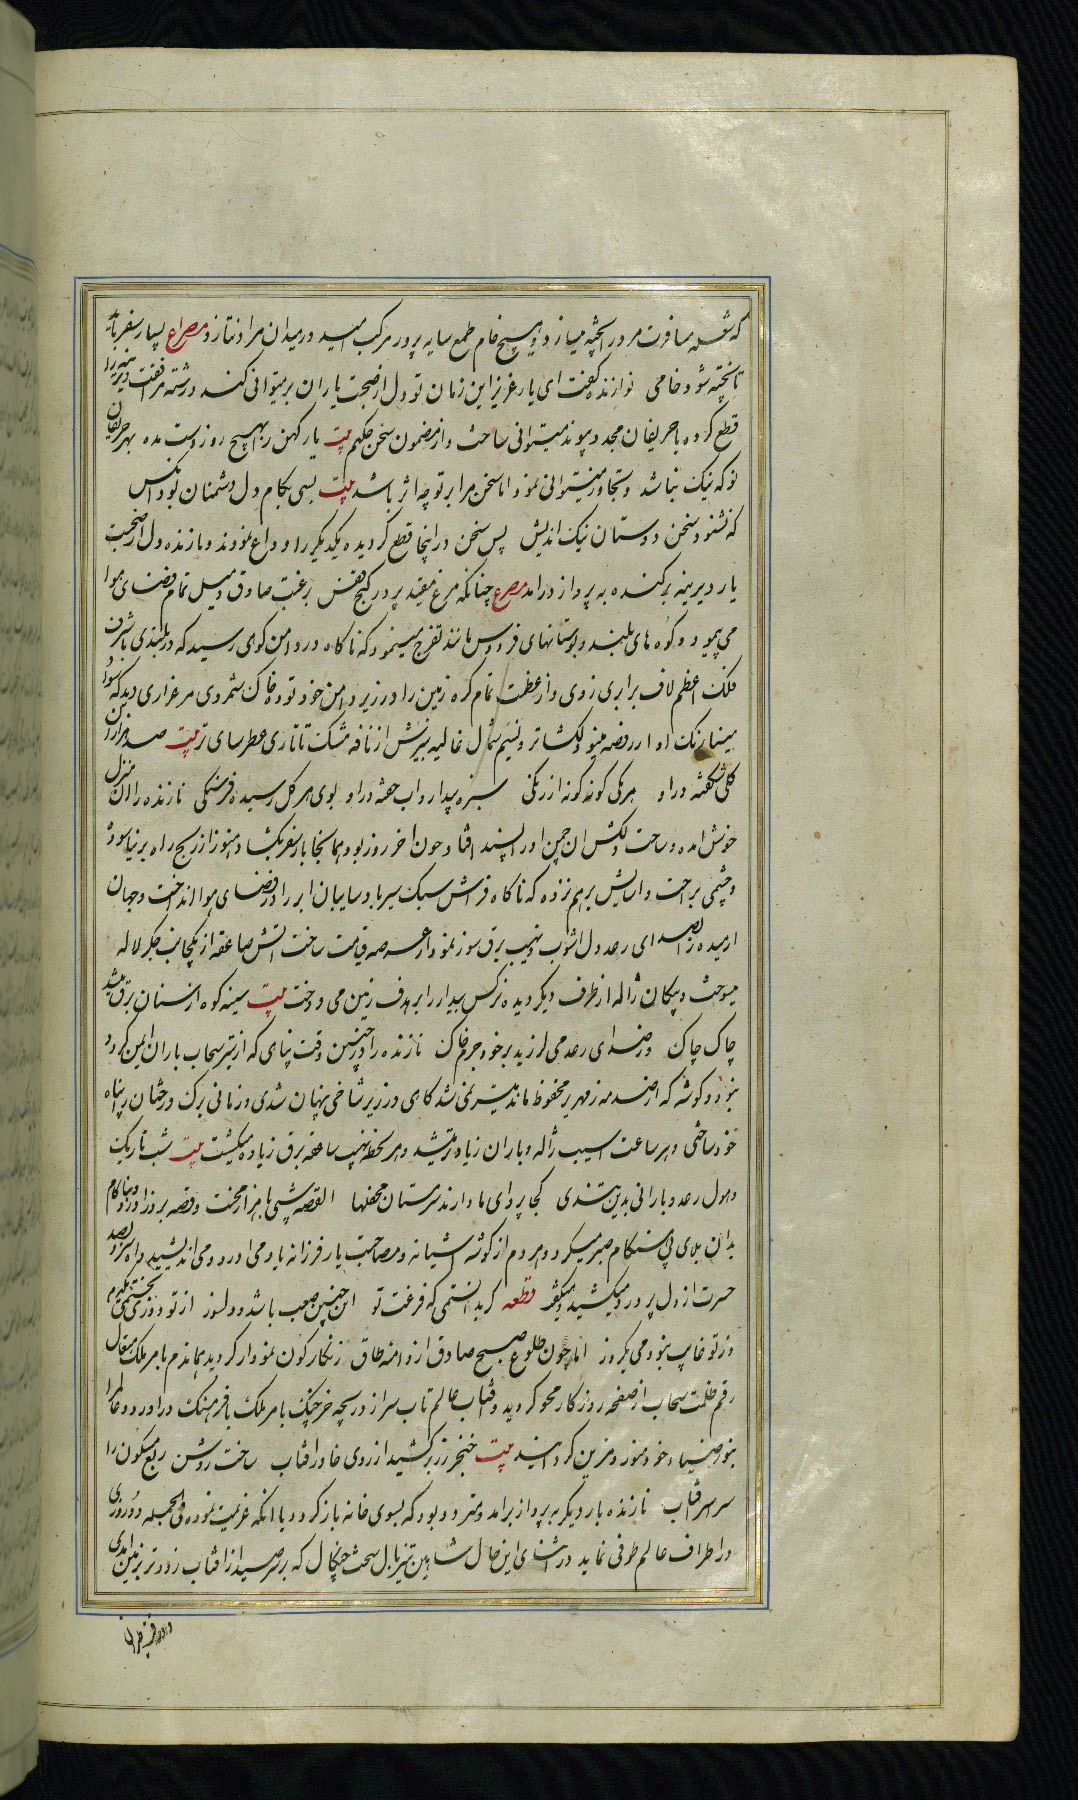 که شعله مسافرت مرد را پخته میسازد و هیچ خام طمع سایه پرور مرکب امید در میدان مراد نتازد مصراع بسیار سفر باید
تا پخته شود خامی نوازنده گفت ای یار عزیز این زمان تو دل از صحبت یاران بر میتوانی کند و رشته مرافقت دیرینه را
قطع کرده با حریفان مجدد پیوند میتوانی ساخت و از مضمون سخن حکیم بیت یار کهن را بهیچ رو ز دست مده بهر حریفان
نو که نیک نباشد و تجاوز میتوانی نمود اما سخن مرا بر تو چه اثر باشد بیت بسی بکام دل دشمنان بود آنکس
که نشنود سخن دوستان نیک اندیش پس سخن در اینجا قطع گردیده یکدیگر را وداع نمودند و بازنده دل از صحبت
یار دیرینه برکنده به پرواز درامد مصرع چنانکه مرغ مقید پرد ز کنج قفس برغبت صادق و میل تمام فضای هوا
می پیمود و کوه های بلند و بوستانهای فردوس مانند تفرج مینمود که ناگاه در دامن کوهی رسید که در بلندی با شرف
فلک اعظم لاف برابری زدی و از عظمت تمام کره زمین را در زیر دامن خود توده خاک شمردی مرغزاری دید که سواد
مینا رنگ او از روضه مینو دلگشاتر و نسیم شمال غالیه بیزش از نافه مشک تاتاری عطرسای تر بیت صد هزاران
گل شکفته در او هر یکی گونه گونه از رنگی سبزه بیدار و آب خفته در او بوی هر گل رسیده فرسنگی بازنده را آن منزل
خوش آمده و ساحت دلکش آن چمن او را پسند افتاد چون آخر روز بود همانجا بار سفر بگشاد هنوز از رنج راه بر نیاسوده
و چشمی براحت و آسایش بر هم نزده که ناگاه فراش سبک سیر باد سایبان ابر را در فضای هوا انداخت و جهان
ارمیده را از صدای رعد دل آشوب و نهیب برق سوز نمودار عرصه قیامت ساخت آتش صاعقه از یکجانب جگر لاله
میسوخت و پیکان ژاله از طرف دیگر دیده نرگس بیدار را بر هدف زمین می دوخت بیت سینه کوه از سنان برق میشد
چاک چاک وز صدای رعد می لرزید بر خود جرم خاک بازنده را در چنین وقت پناهی که از تیر سحاب باران ایمن گردد
نبود و گوشه که از صدمه زمهریر محفوظ ماند میسر نمی شد گاهی در زیر شاخی پنهان شدی و زمانی برگ درختان را پناه
خود ساختی و هر ساعت آسیب ژاله و باران زیاده تر میشد و هر لحظه نهیب ساعقه برق زیاده میگشت بیت شب تاریک
و هول رعد و بارانی بدین تندی کجا پروای ما دارند سرمستان محفلها القصه شبی با هزار محنت و غصه بروز آورد و بناکام
بدان بلای بی هنگام صبر میکرد و هر دم از گوشه آشیانه و مصاحبت یار فرزانه یاد می آورد و می اندیشید و آه سرد بصد
حسرت از دل پر درد میکشید و میگفت قطعه گر بدانستمی که فرقت تو این چنین صعب باشد و دلسوز از تو دوری نجستمی یکدم
وز تو غایب نبودمی یکروز اما چون طلوع صبح صادق از دامنه طاق زنگارگون نمودار گردید هماندم بامر ملک متعال
رقم ظلمت سحاب از صفحه روزگار محو گردید و آفتاب عالم تاب سر از دریچه خرچنگ بامر ملک با فرهنگ درآورد و عالم را
بنور ضیاء خود منور و مزین گردانید بیت خنجر زر برکشید از روی خاور آفتاب ساخت روشن ربع مسکون را
سراسر آفتاب بازنده بار دیگر به پرواز برآمد و متردد بود که بسوی خانه باز گردد و یا آنکه عزیمت نموده فی الجمله دو روزی
در اطراف عالم طوفی نماید در اثنای این حال شاهین تیز بال سخت چنگال که بر صید از آفتاب زودتر بزمین آمدی